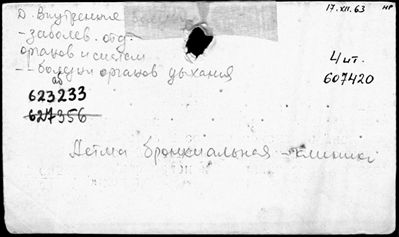 Д. Внутренние болезни
17.XII.63 НР
- заболев. отд.
органов и систем
-- болезни органов дыхания
4 ит.
607420
623233
627956
Астма бронхиальная - клиника